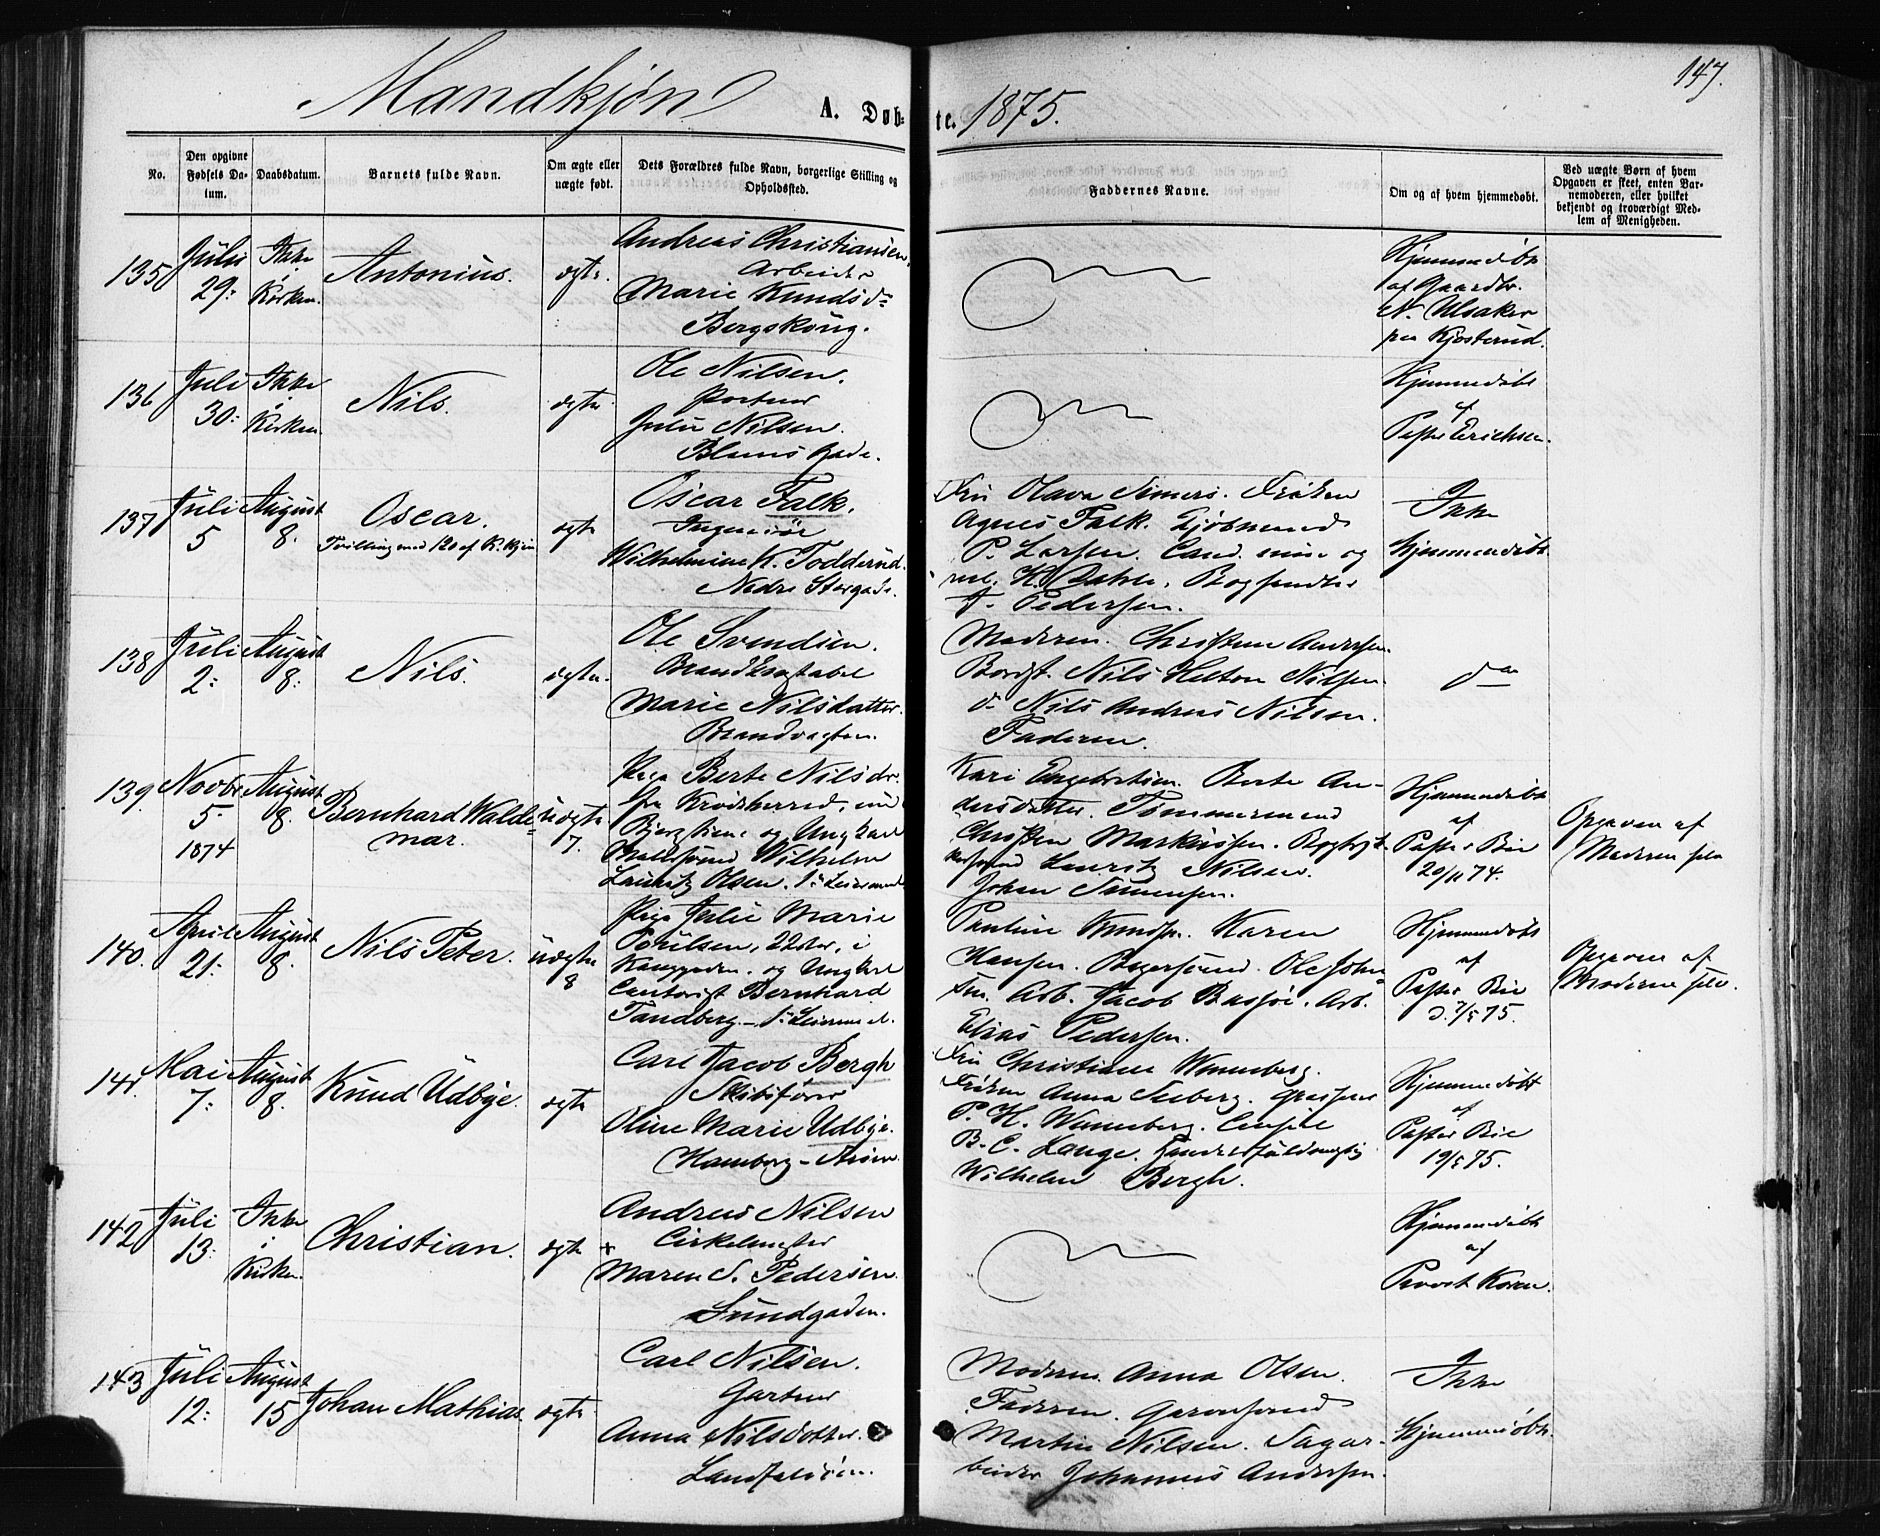 Mandkjøn
A. Døb-
te. 1875.
147.
No.
Den opgivne Fødsels Da-
tum.
Daabsdatum.
Barnets fulde Navn.
Om ægte eller
uægte født.
Dets Forældres fulde Navn, borgerlige Stilling og
Opholdssted.
Faddernes Navne.
Om og af hvem hjemmedøbt.
Ved uægte Børn af hvem
Opgaven er skeet, enten Bar-
nemoderen, eller hvilket
bekjendt og troværdigt Med-
lem af Menigheden.
135
Juli
29:
Ikke
i
Kirken.
Antonius.
ægte.
Andreas Christiansen,
Arbeider
Marie Knudsd.
Bergskoug.
Hjemmedøbt
af Gaardbr.
N. Ulsaker
paa Kjøsterud.
136
Juli
30:
Ikke
i
Kirken
Nils.
ægte.
Ole Nilsen.
Portner
Julie Nilsen.
Bloms Gade.
Hjemmedøbt
af
Pastor Erichsen.
137
Juli
5
August
8.
Oscar.
Tvilling med 120 af K. Kjøn
ægte
Oscar Falk.
Ingeniør
Wilhelmine K. Todderud.
Nedre Storgade.
Fru Olava Simers. Frøken
Agnes Falk. Kjøbmand
P. Larsen. Cand. min og
med. H. Dahle. Bogholder
Pedersen.
Ikke
Hjemmedøbt
138
Juli
2:
August
8:
Nils.
ægte.
Ole Svendsen.
Brandkonstabel
Marie Nilsdatter.
Brandvagten.
Moderen. Christine Andersen.
Nils Helton Nilsen.
d. Nils Andreas Nilsen.
Faderen.
do
139.
Novbr
5.
1874
August
8.
Bernhard Walde-
mar.
uægte
7.
Pige Berte Nilsdr.
fra Krødsherred, nu
Bjergstiene og Ungkarl
Wilhelm
Lauritz Olsen. 1ste Leiermaal
Kari Engebretsen. Berte An-
dersdatter. Tømmermand
Christen Markussen.
Lauritz Nilsen.
Johan Simensen.
Hjemmedøbt
af
Pastor Bie
20/11 74.
Opgaven af
Moderen selv
140.
April
21:
August
8.
Nils Peter.
uægte
8
Pige Julie Marie
Poulsen, 22 Aar, i
Kangaden. og Ungkarl
Bernhard
Tandberg. – 1ste Leiermaal.
Pauline Knudsen. Karen
Hansen. Ole John
sen. Arb. Jacob Bassøe. Arb.
Elias Pedersen.
Hjemmedøbt
af
Pastor Bie
d. 7/5 75.
Opgaven af
Moderen selv.
141.
Mai
7:
August
8.
Knud Udbye.
ægte
Carl Jacob Bergh
Skibsfører
Oline Marie Udbye.
Hamborg–
Fru Christiane Wenneberg.
Frøken Anna Seeberg.
P. H. Wenneberg.
B. C. Lange.
Wilhelm Bergh.
Hjemmedøbt
af
Pastor Bie
19/5 75.
142
Juli
13.
Ikke
i
Kirken.
Christian.
ægte
Andreas Nilsen
Maren S. Pedersen.
Sundgaden.
Hjemmedøbt
af
Provst Koren.
143
Juli
12:
August
15
Johan Mathias.
ægte.
Carl Nilsen.
Gartner
Anna Nilsdatter.
Landfaldøen.
Moderen. Anna Olsen.
Faderen.
Martin Nilsen. Sagar-
beider Johannes Andersen.
Ikke
Hjemmedøbt.